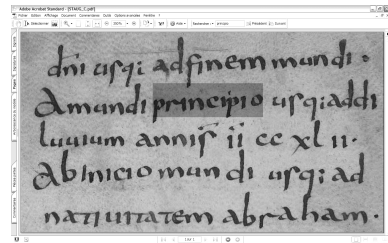 Adobe Acrobat Standard - [STAMS_C.pdf]
Fichier Edition Affichage Document Commentaires Outils Options avancées Fenêtre ?
Sélectionner 200% Aide Rechercher : principio Précédent Suivant
dni usq; ad finem mundi .
A mundi principio usq; addi
luuium annis ii cc xl ii .
Ab inicio mundi usq; ad
natiuitatem abraham .
1 sur 1